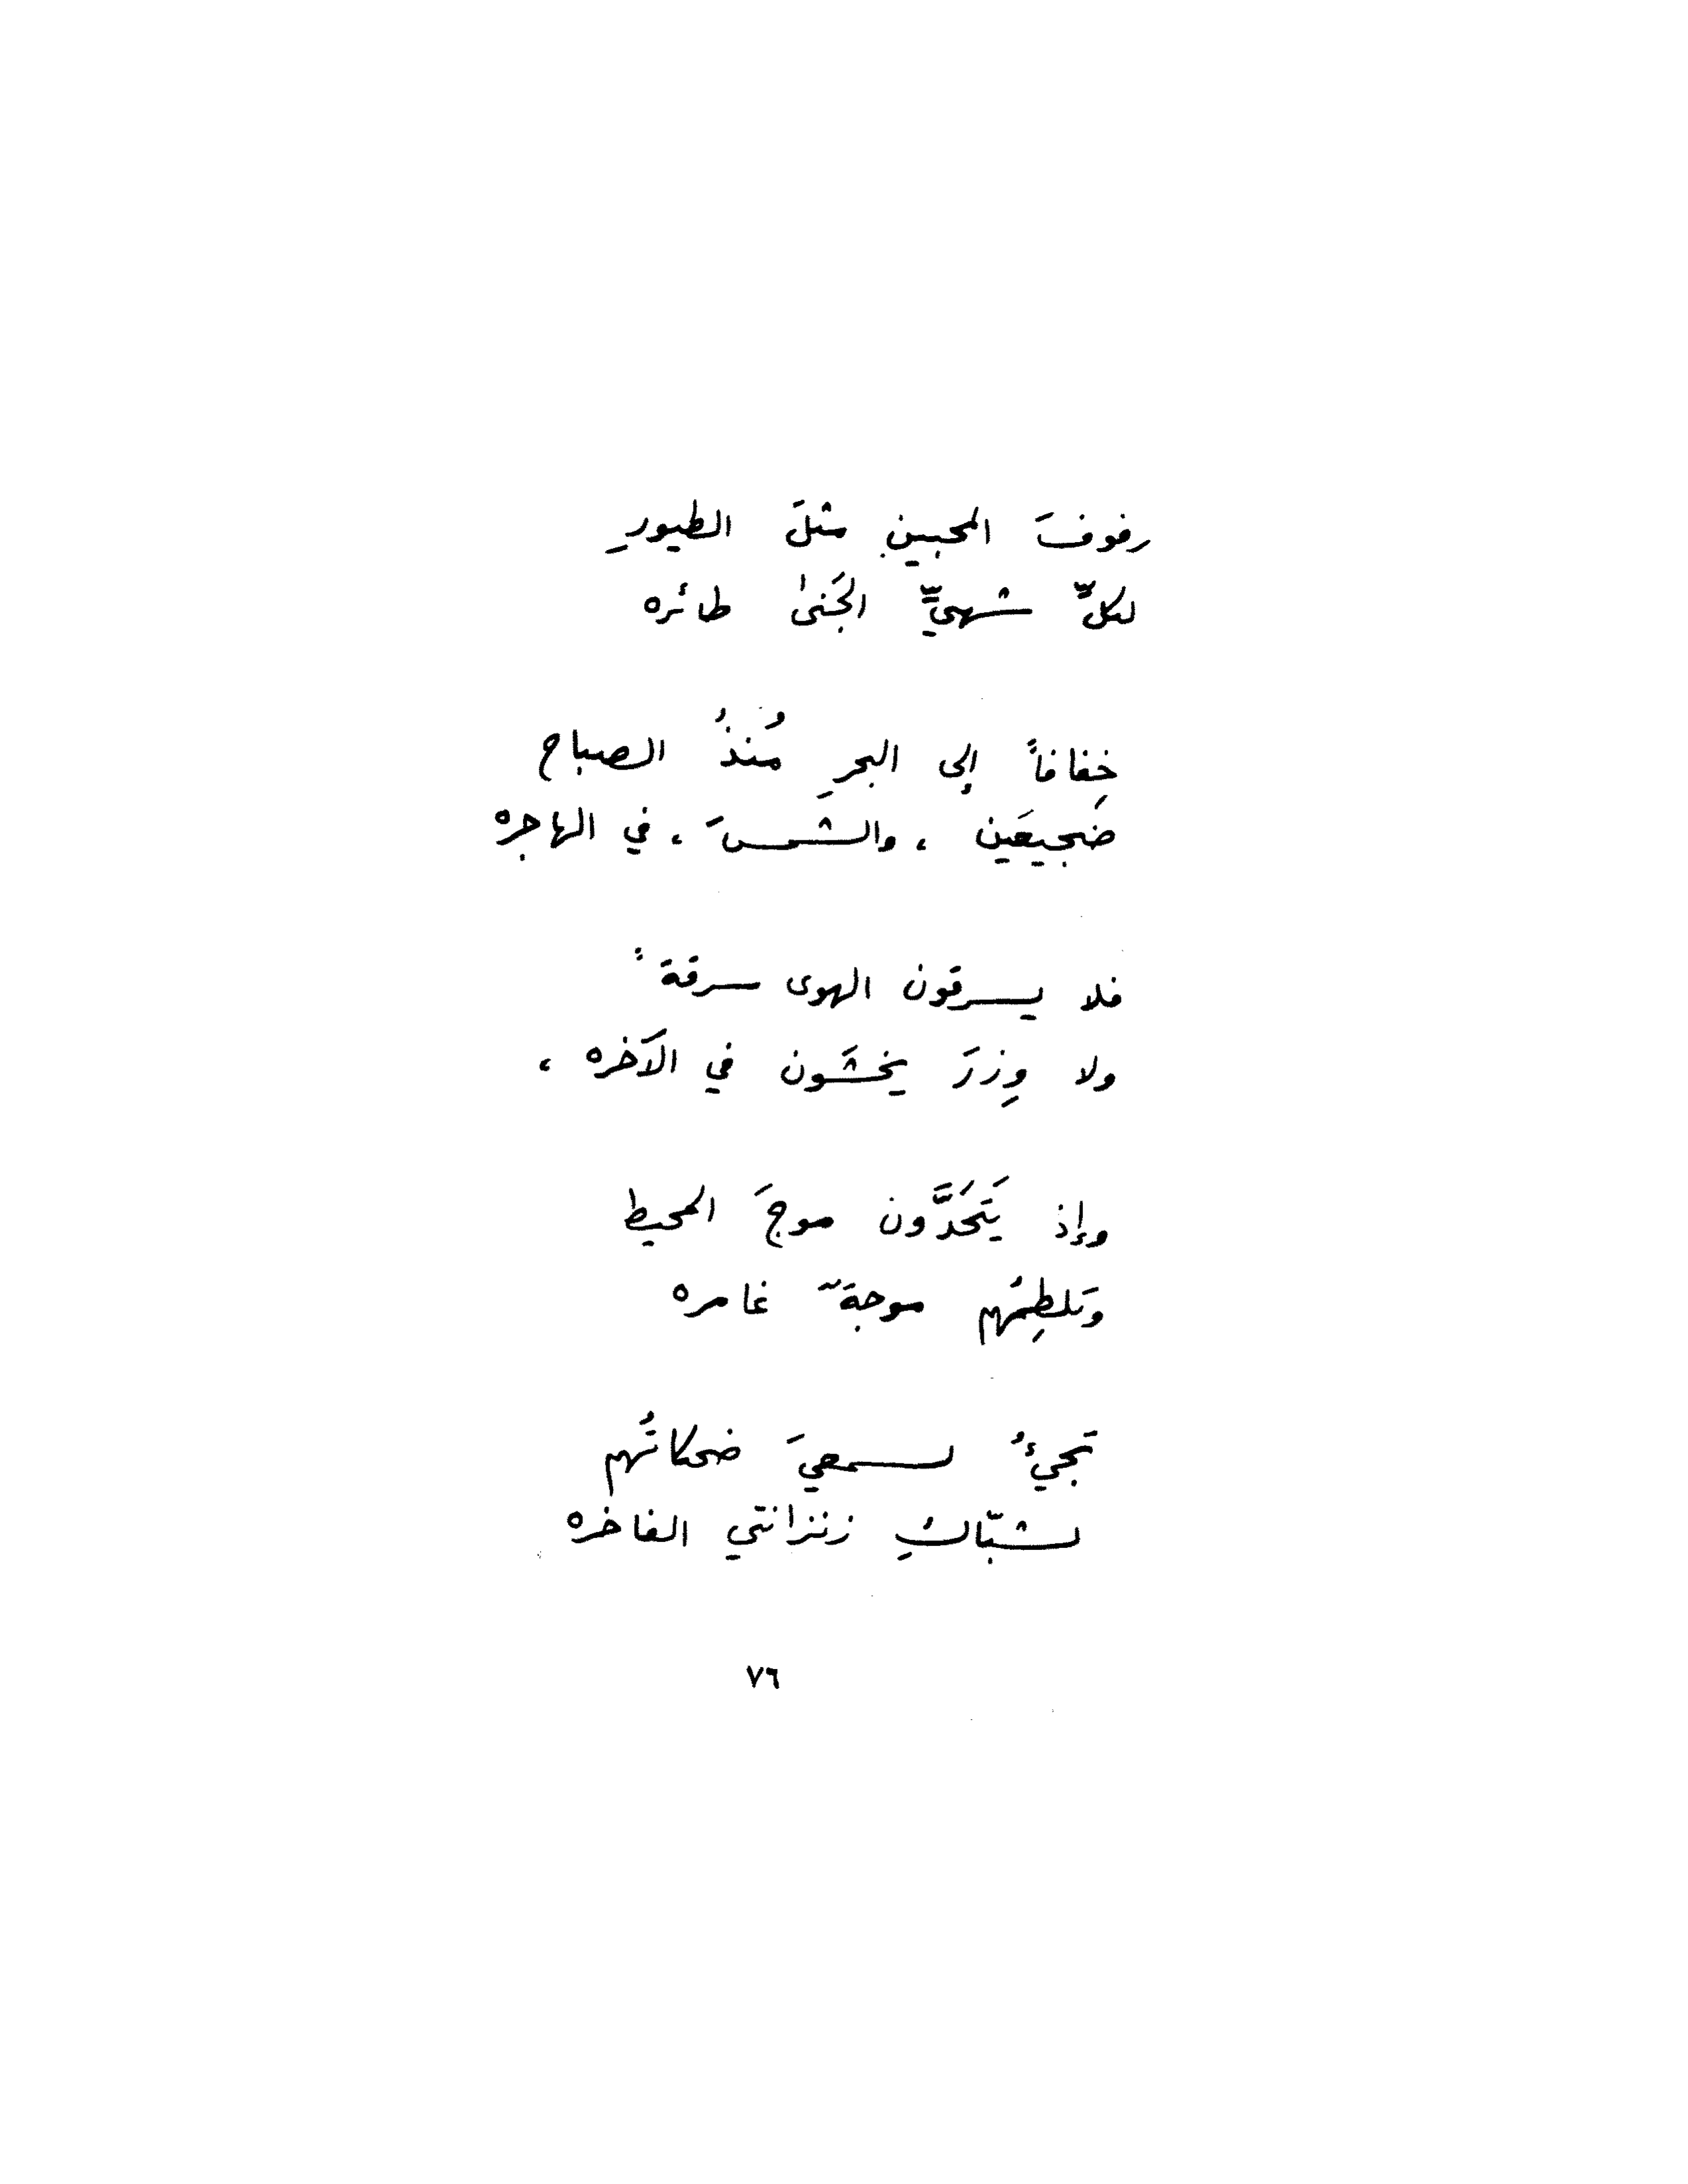 رفوفَ المحبين مثلَ الطيورِ
لكلٍّ شهيٍّ الجَنىٰ طائره
خِفافاً إلى البحرِ مُنذُ الصباح
ضَجيعَين ، والشمسَ ، في الهاجره
فلا يسرقون الهوى سرقةً
ولا وِزرَ يخشَون في الآخره ،
وإذ يَتَحَدَّون موجَ المحيط
وتَلطِمُهم موجةٌ غامره
تجيءُ لسمعيَ ضحكاتُهم
لشبّاكِ زنزانتي الفاخره
٧٦